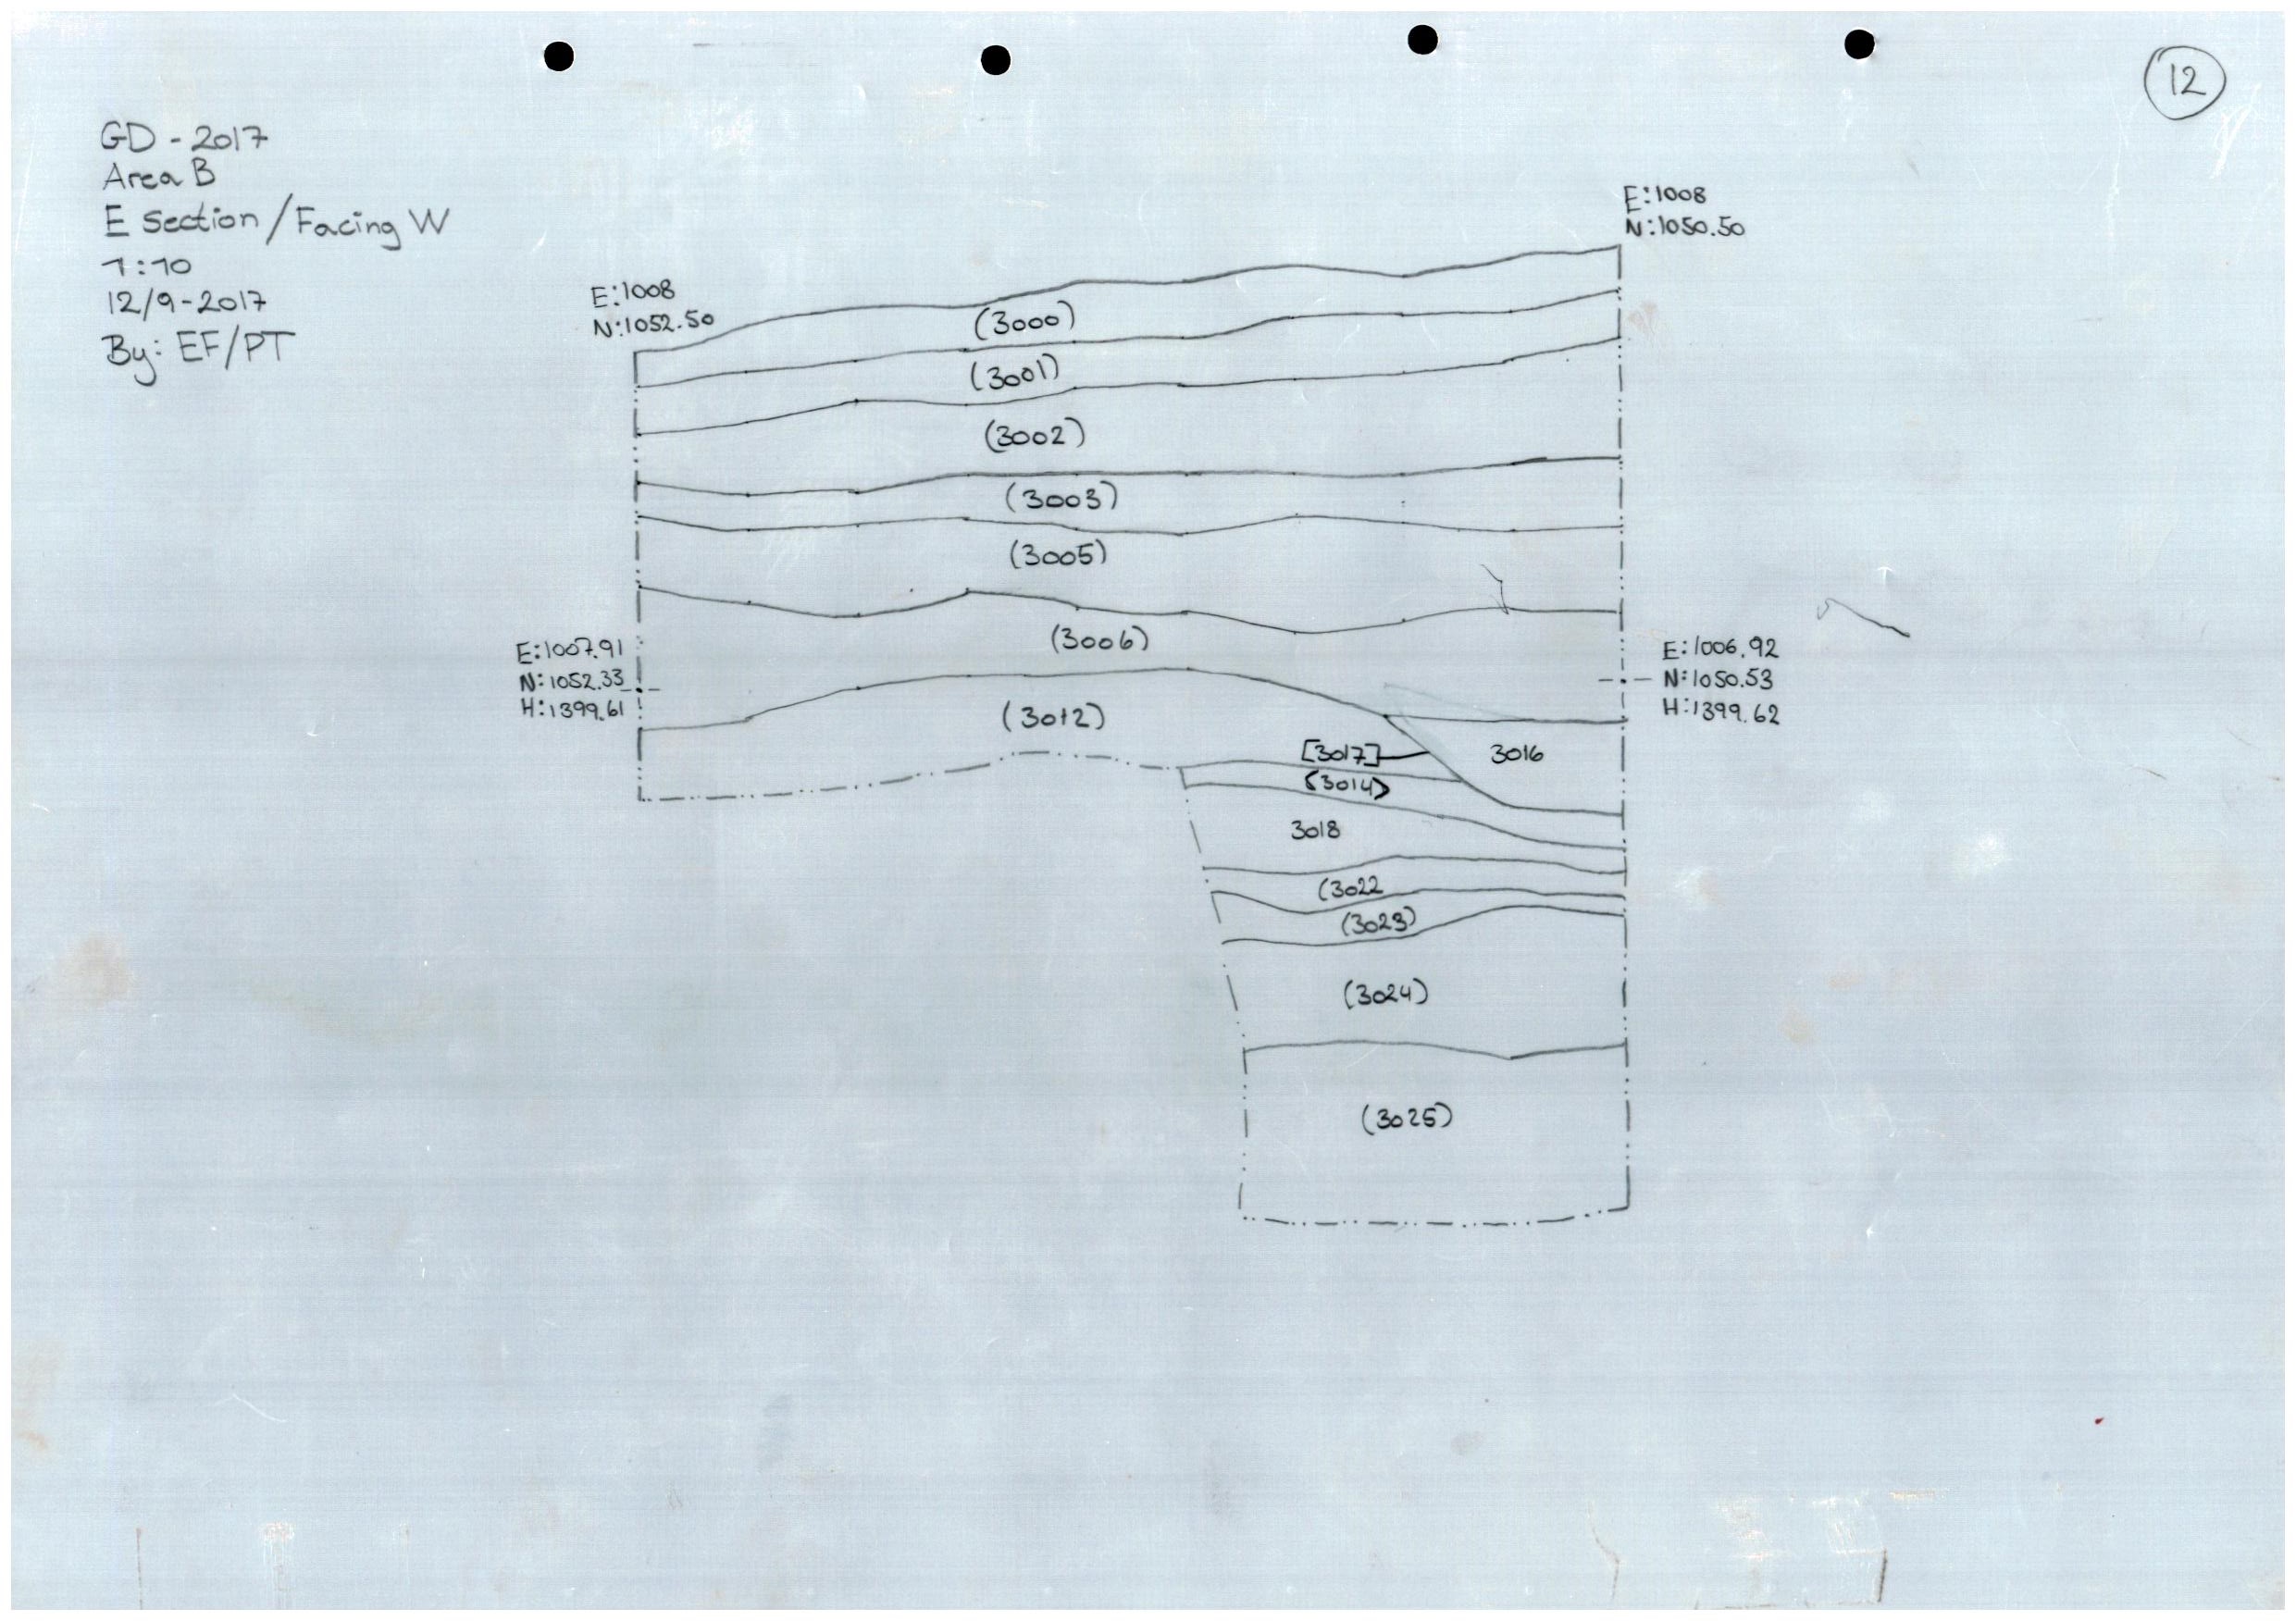 12
GD - 2017
Area B
E section / Facing W
1:10
12/9-2017
By: EF/PT
E:1008
N:1050.50
E:1008
N:1052.50
(3000)
(3001)
(3002)
(3003)
(3005)
(3006)
E:1007.91
N:1052.33
H:1399.61
E:1006.92
N:1050.53
H:1399.62
(3012)
[3017]
3016
<3014>
3018
(3022
(3023)
(3024)
(3025)